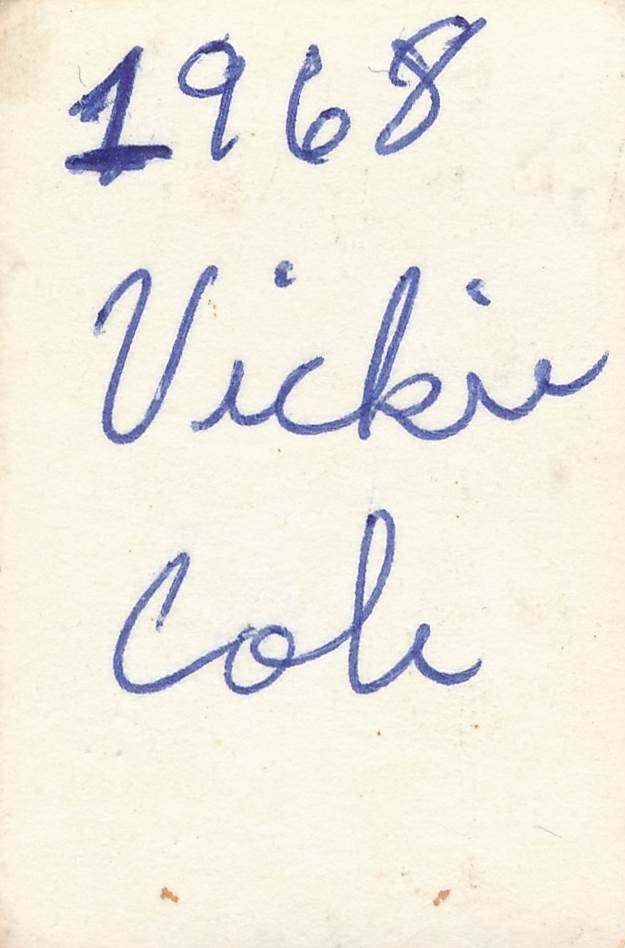 1968
Vickie
Cole